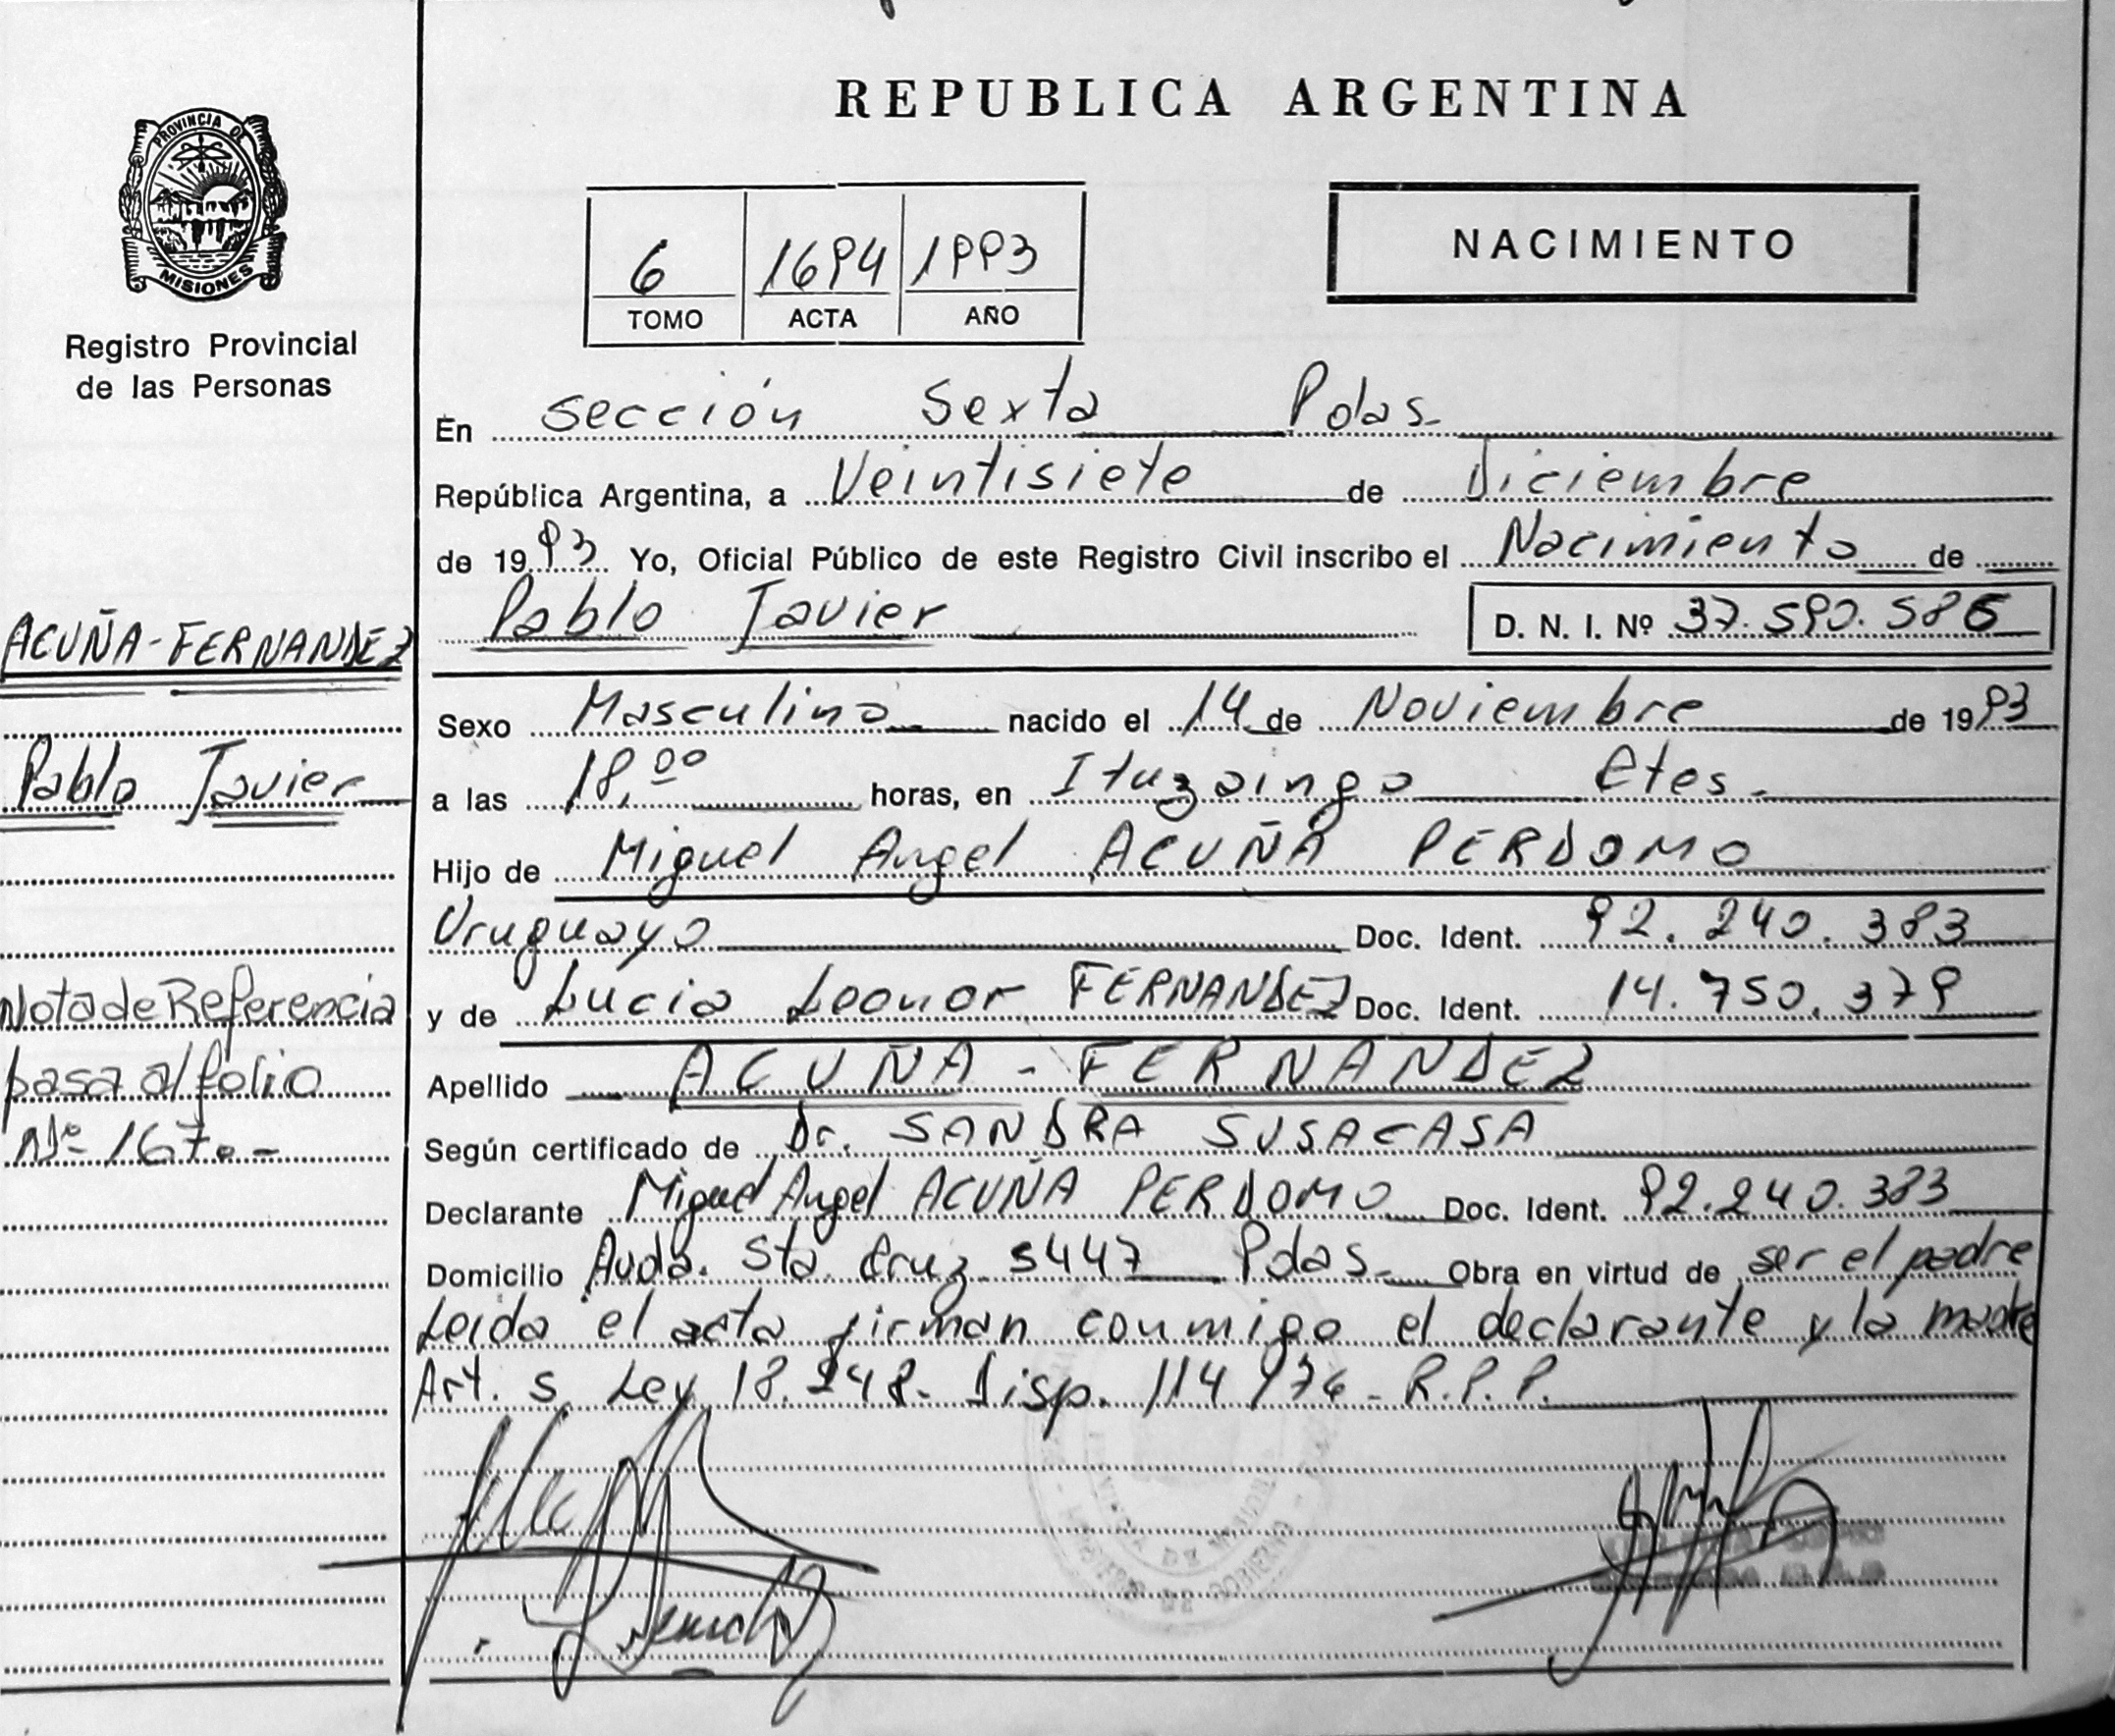 REPUBLICA ARGENTINA
PROVINCIA DE
MISIONES
Registro Provincial
de las Personas
6 1694 1993
TOMO ACTA AÑO
NACIMIENTO
En Sección Sexta Pdas.
República Argentina, a Veintisiete de Diciembre
de 1993 Yo, Oficial Público de este Registro Civil inscribo el Nacimiento de
Pablo Javier D. N. I. Nº 37.590.586
Sexo Masculino nacido el 14 de Noviembre de 1993
a las 18,00 horas, en Ituzaingo Ctes.
Hijo de Miguel Angel ACUÑA PERDOMO
Uruguayo Doc. Ident. 92.240.383
y de Lucia Leonor FERNANDEZ Doc. Ident. 14.750.379
Apellido ACUÑA - FERNANDEZ
Según certificado de Dr. SANDRA SUSACASA
Declarante Miguel Angel ACUÑA PERDOMO Doc. Ident. 92.240.383
Domicilio Avda. Sta. Cruz 5447 Pdas. Obra en virtud de ser el padre
Leida el acta firman conmigo el declarante y la madre
Art. 5 Ley 18.248. Disp. 114/76 - R.P.P.
ACUÑA - FERNANDEZ
Pablo Javier
Nota de Referencia
pasa al folio
Nº 167.-